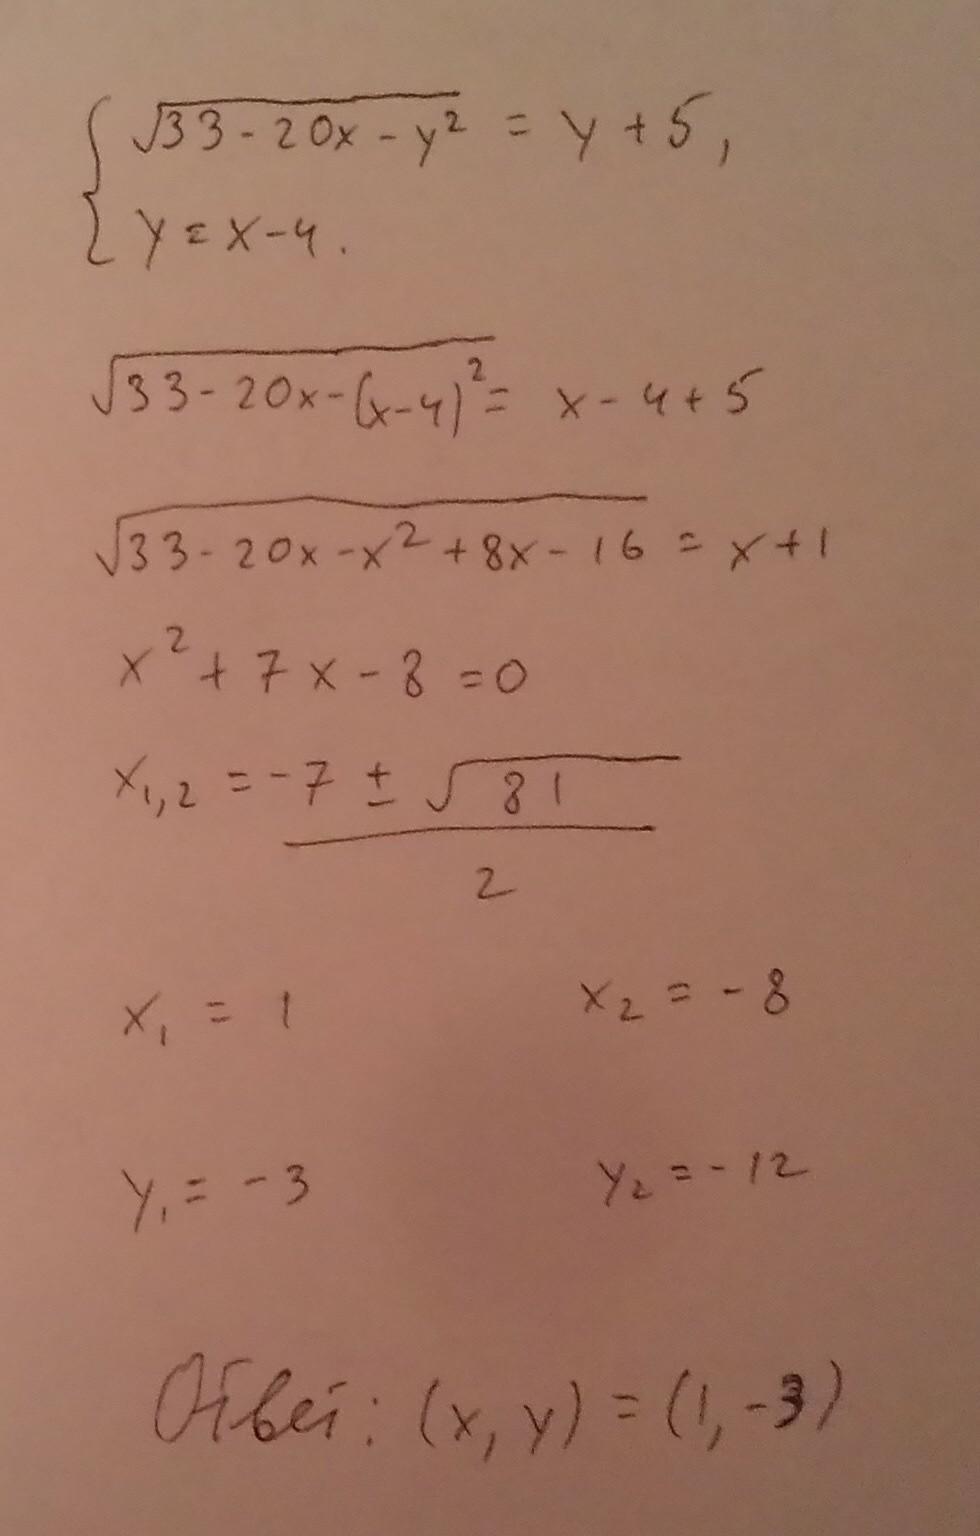 √33-20x-y² = y+5,
y=x-4.
√33-20x-(x-4)² = x-4+5
√33-20x-x²+8x-16 = x+1
x²+7x-8=0
x₁,₂ = -7 ± √81
2
x₁ = 1 x₂ = -8
y₁ = -3 y₂ = -12
Ответ: (x, y) = (1, -3)